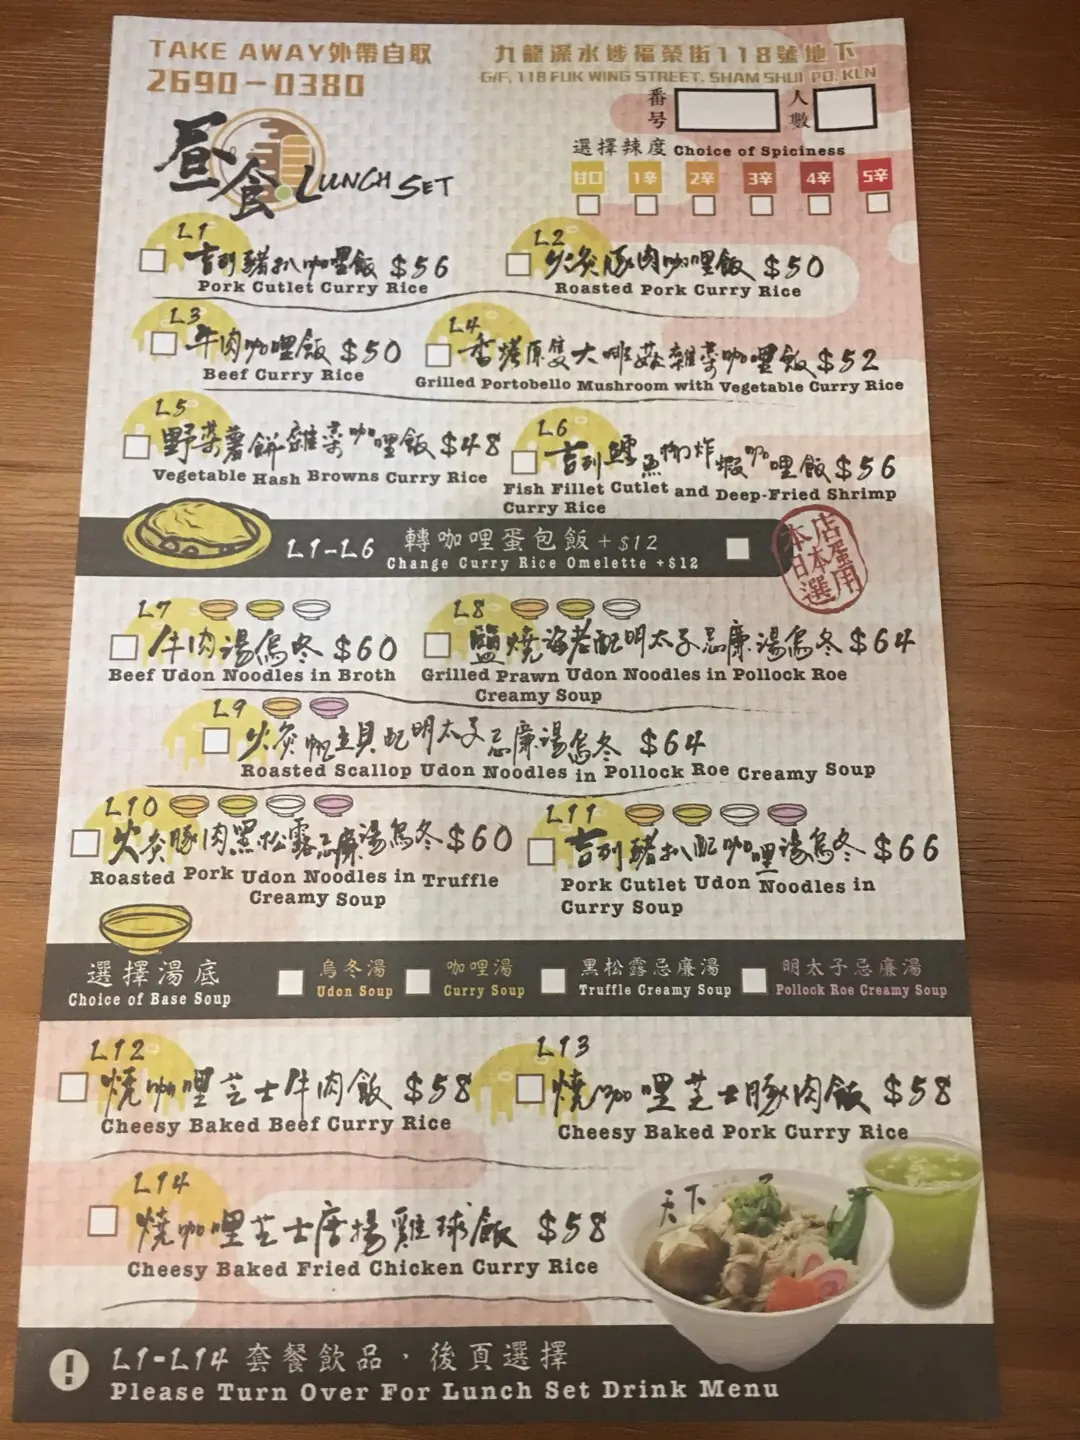 TAKE AWAY外帶自取
2690-0380
九龍深水埗福榮街118號地下
G/F, 118 FUK WING STREET, SHAM SHUI PO, KLN
番号
人數
選擇辣度 Choice of Spiciness
甘口 1辛 2辛 3辛 4辛 5辛
昼食 LUNCH SET
L1
吉列豬扒咖哩飯 $56
Pork Cutlet Curry Rice
L2
火炙豚肉咖哩飯 $50
Roasted Pork Curry Rice
L3
牛肉咖哩飯 $50
Beef Curry Rice
L4
香烤原隻大啡菇雜菜咖哩飯 $52
Grilled Portobello Mushroom with Vegetable Curry Rice
L5
野菜薯餅雜菜咖哩飯 $48
Vegetable Hash Browns Curry Rice
L6
吉列鱈魚柳炸蝦咖哩飯 $56
Fish Fillet Cutlet and Deep-Fried Shrimp
Curry Rice
L1-L6 轉咖哩蛋包飯 +$12
Change Curry Rice Omelette +$12
本店
日本蛋
選用
L7
牛肉湯烏冬 $60
Beef Udon Noodles in Broth
L8
鹽燒海老配明太子忌廉湯烏冬 $64
Grilled Prawn Udon Noodles in Pollock Roe
Creamy Soup
L9
火炙帆立貝配明太子忌廉湯烏冬 $64
Roasted Scallop Udon Noodles in Pollock Roe Creamy Soup
L10
火炙豚肉黑松露忌廉湯烏冬 $60
Roasted Pork Udon Noodles in Truffle
Creamy Soup
L11
吉列豬扒配咖哩湯烏冬 $66
Pork Cutlet Udon Noodles in
Curry Soup
選擇湯底
Choice of Base Soup
烏冬湯
Udon Soup
咖哩湯
Curry Soup
黑松露忌廉湯
Truffle Creamy Soup
明太子忌廉湯
Pollock Roe Creamy Soup
L12
燒咖哩芝士牛肉飯 $58
Cheesy Baked Beef Curry Rice
L13
燒咖哩芝士豚肉飯 $58
Cheesy Baked Pork Curry Rice
L14
燒咖哩芝士唐揚雞球飯 $58
Cheesy Baked Fried Chicken Curry Rice
天下
! L1-L14 套餐飲品，後頁選擇
Please Turn Over For Lunch Set Drink Menu